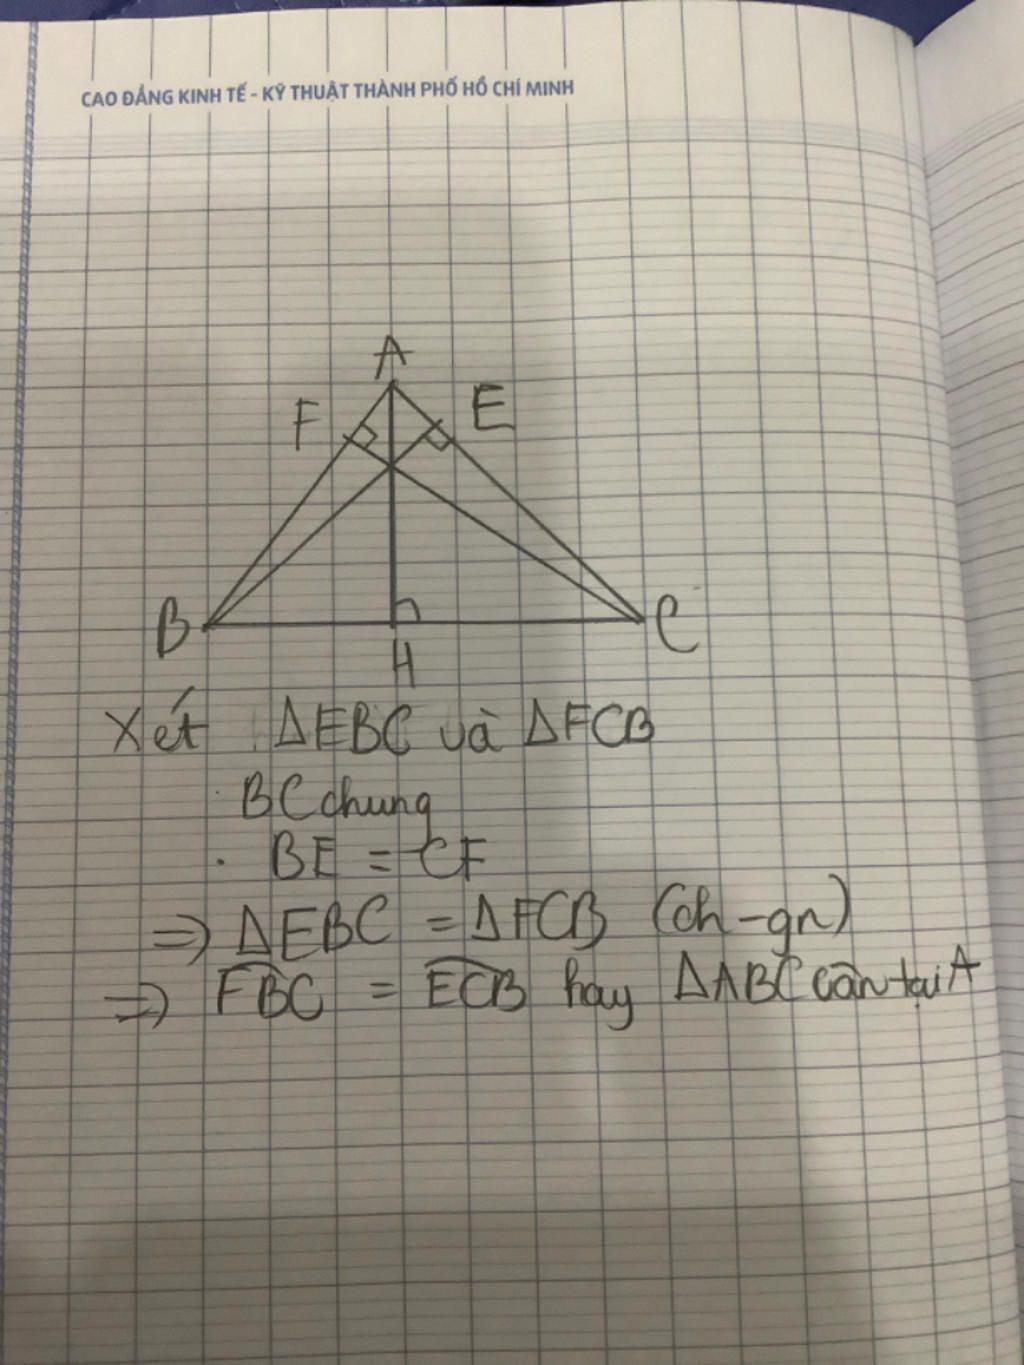 CAO ĐẲNG KINH TẾ - KỸ THUẬT THÀNH PHỐ HỒ CHÍ MINH
A
F E
B C
H
Xét ΔEBC và ΔFCB
BC chung
. BE = CF
=> ΔEBC = ΔFCB (ch-gn)
=> FBC = ECB hay ΔABC cân tại A